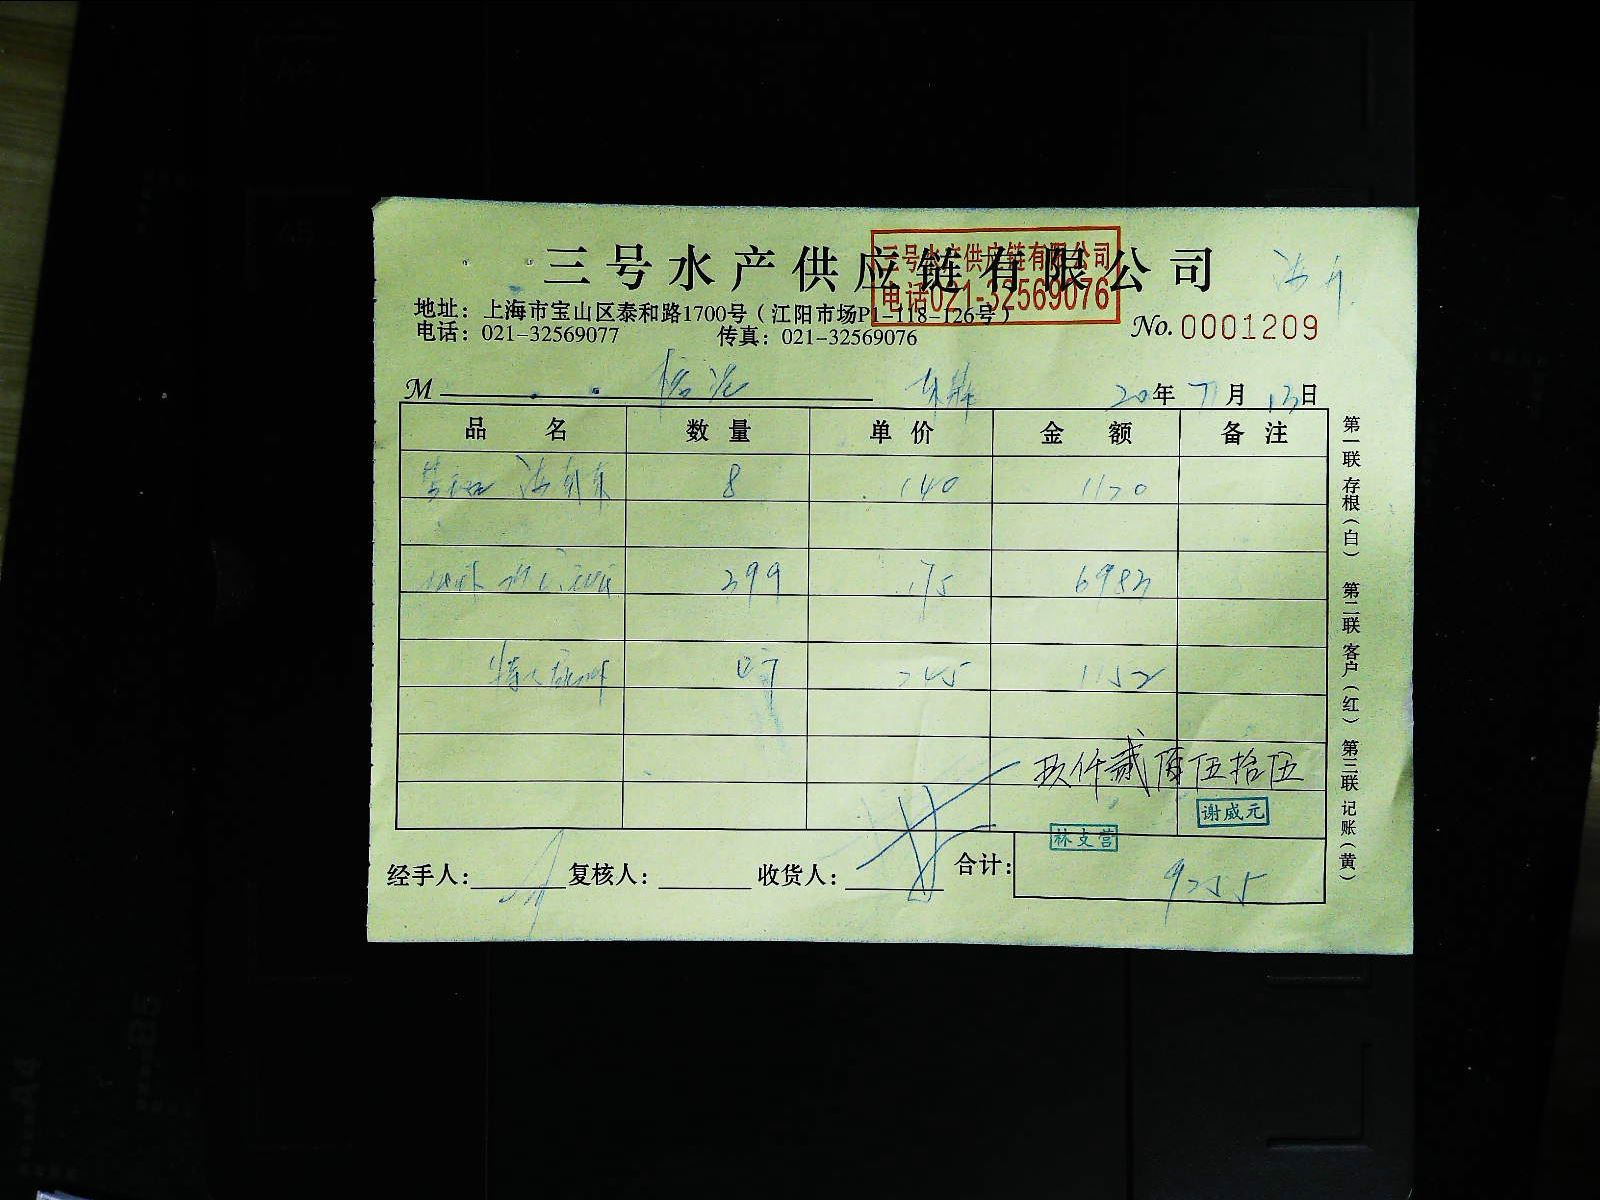 三号水产供应链有限公司
三号水产供应链有限公司
电话021-32569076
地址：上海市宝山区泰和路1700号（江阳市场P1-118-126号）
电话：021-32569077 传真：021-32569076
No.0001209
M 20年 月 13日
品名 数量 单价 金额 备注
8 140 1120
399 175 6983
245 1152
玖仟贰佰伍拾伍
谢威元
林支营
经手人： 复核人： 收货人： 合计： 9255
第一联 存根（白） 第二联 客户（红） 第三联 记账（黄）